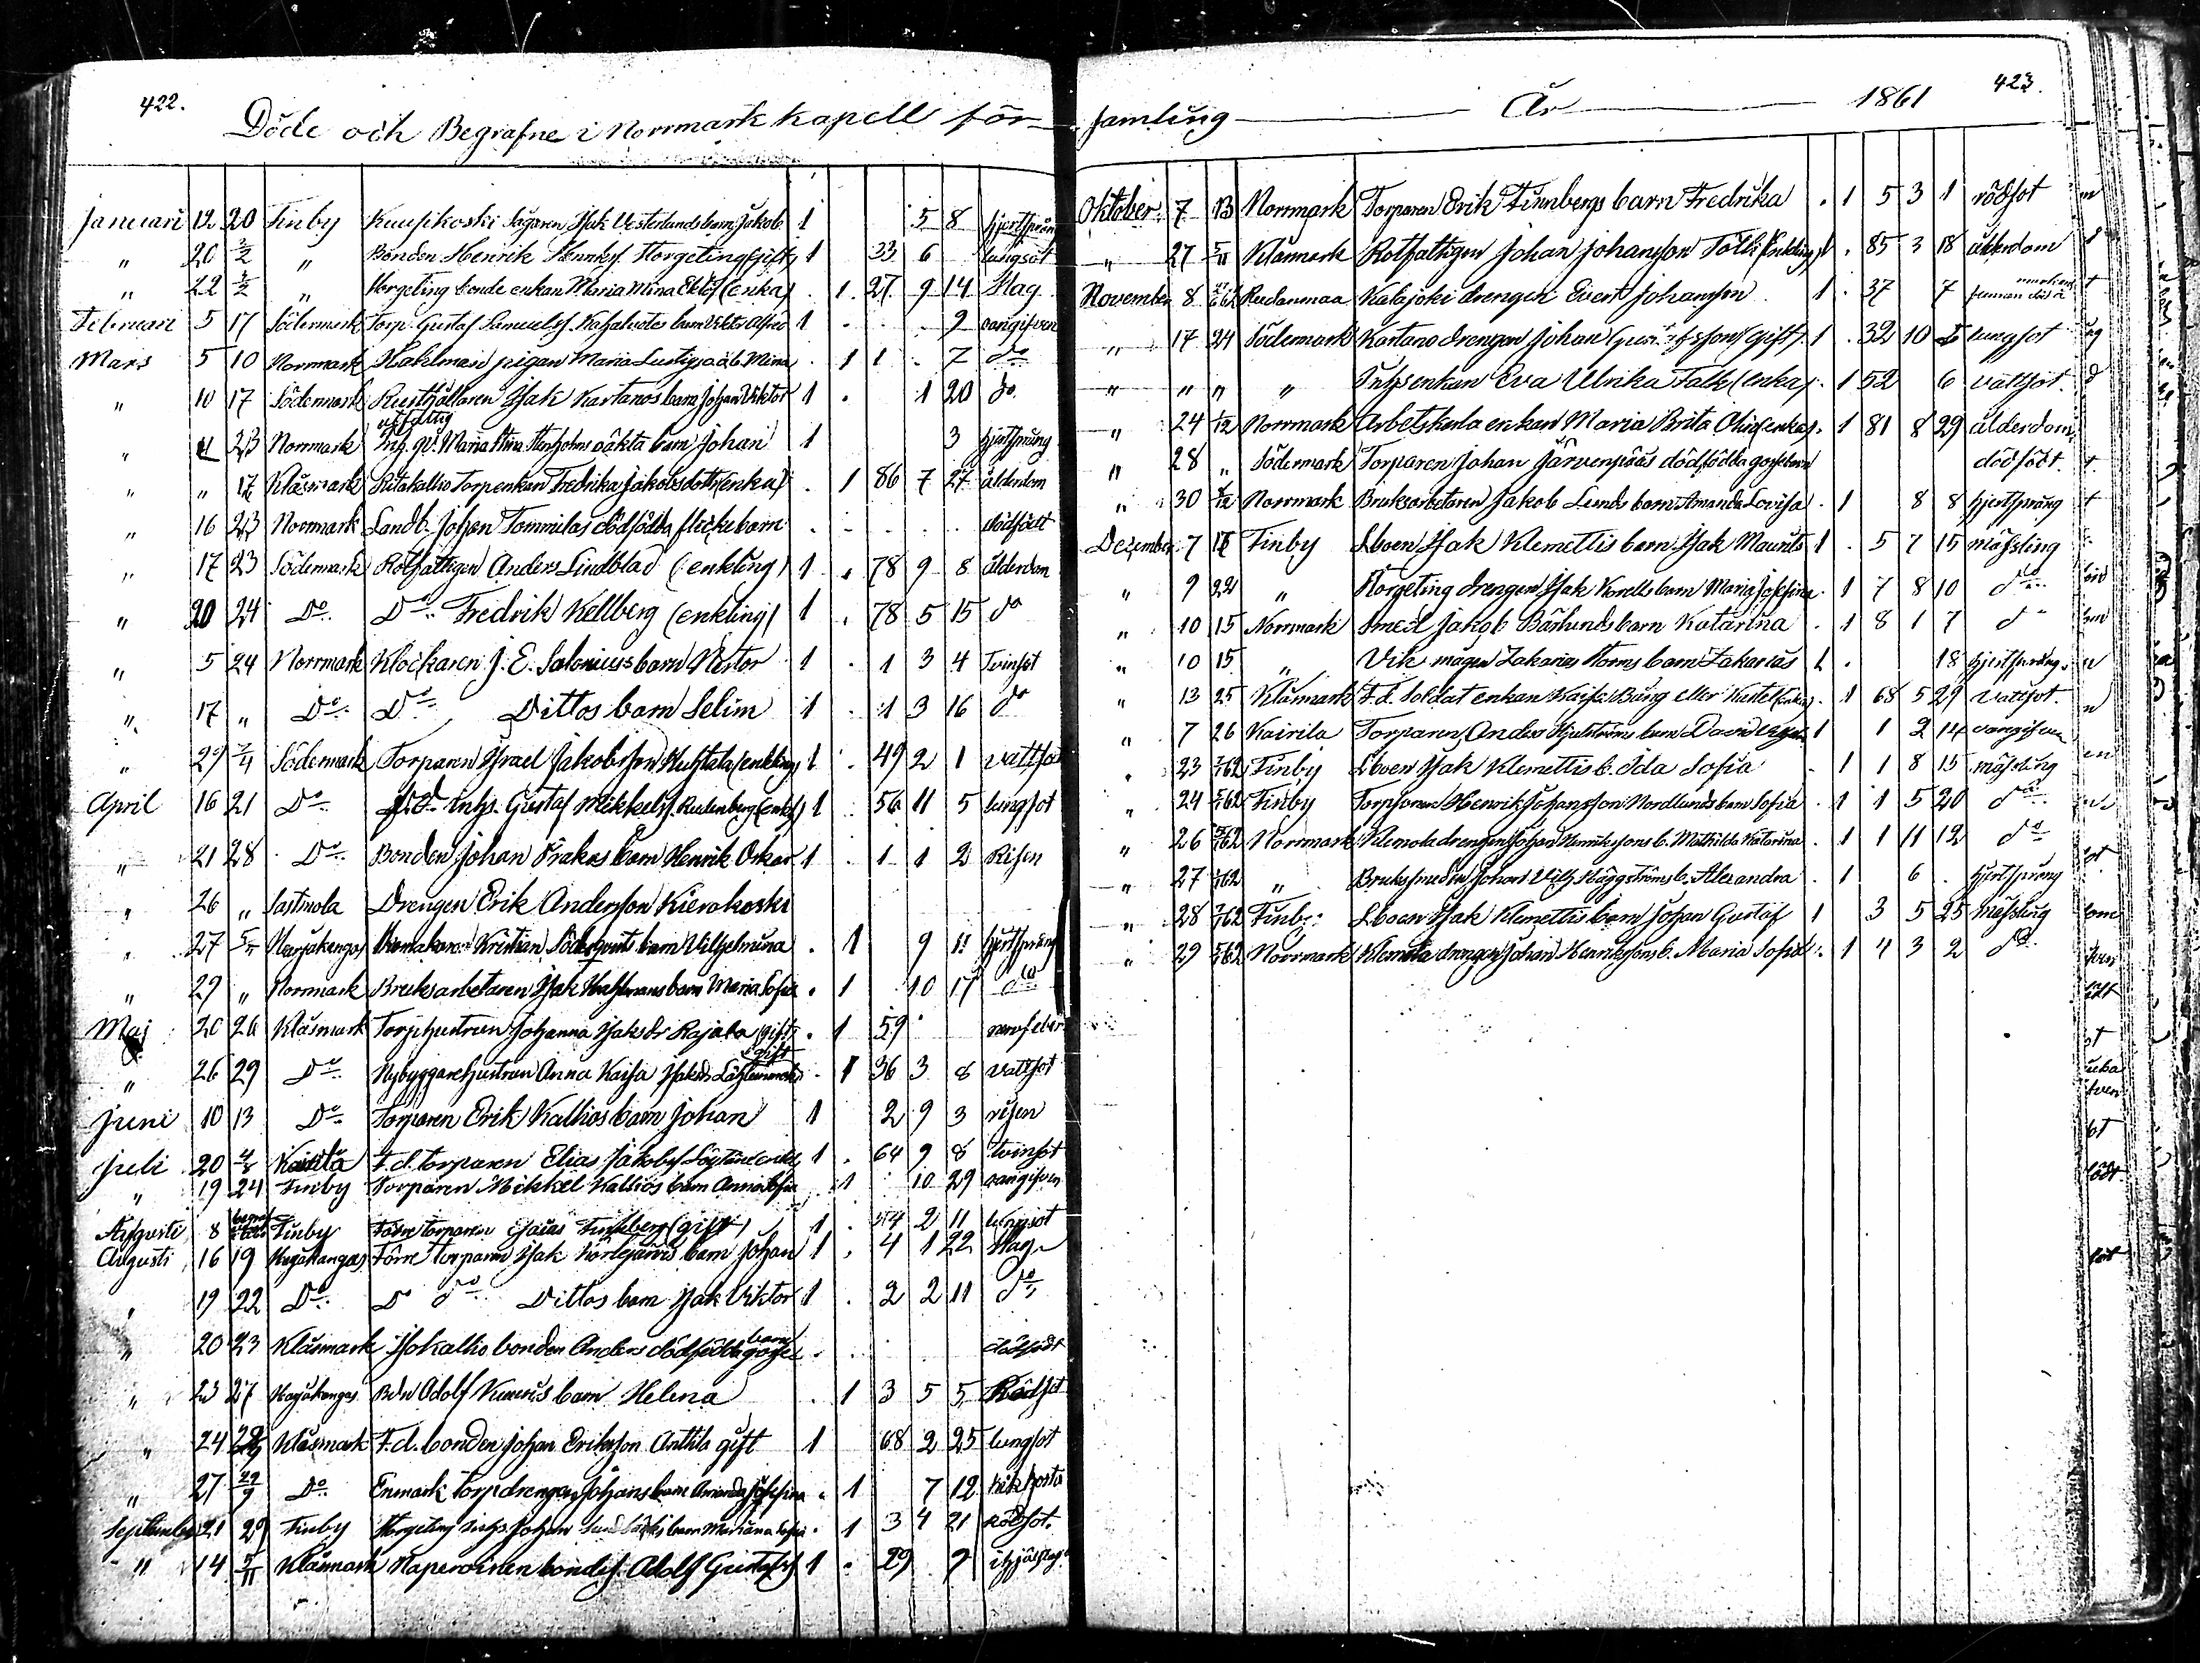 422.
Döde och Begrafne i Norrmark kapell för-
Januari 12 20 Finby Kuusikoski Sagaren Isak Vesterlunds barn Jakob 1 5 8 hjertsprång
" 20 2/2 " Bonden Henrik Horgeting (gift) 1 33 6 lungsot
" 22 2/2 " Horgeting bonde enkan Maria Mina (enka) . 1 27 9 14 Slag
Februari 5 17 Södermark Torp. Gustaf Samuelss. barn Viktor Alfred 1 9 oangifven
Mars 5 10 Norrmark pigan Maria oäb Mina . 1 1 . 7 do
" 10 17 Södermark Rusthållaren Isak Kartanos barn Johan Viktor 1 . 1 20 do
" 23 Norrmark Maria Stina oäkta barn Johan 1 3 hjertsprång
" " 17 Klåsmark Torpenkan Fredrika Jakobsdotter (enka) . 1 86 7 27 ålderdom
" 16 23 Norrmark Landb. Johan Tommilas dödfödda flickebarn dödfödt
" 17 23 Södermark Rotfattigen Anders Lindblad (enkling) 1 . 78 9 8 ålderdom
" 20 24 Do Do Fredrik Kellberg (enkling) 1 . 78 5 15 do
" 5 24 Norrmark Klockaren J. E. Salonius barn Nestor 1 . 1 3 4 Tvinsot
" 17 " Do Do Dittos barn Selim 1 . 1 3 16 do
" 29 7/4 Södermark Torparen Israel Jakobsson Huhtala (enkling) 1 . 49 2 1 vattsot
April 16 21 Do F.d. Inhs. Gustaf Mikkelss. (enkl) 1 56 11 5 lungsot
" 21 28 Do Bonden Johan Prakas barn Henrik Oskar 1 . 1 1 2 Risen
" 26 " Sastmola Drengen Erik Andersson Kierokoski
" 27 5/5 Harjakangas Kristian Söderqvists barn Vilhelmina . 1 9 11 hjertsprång
" 29 " Norrmark Bruksarbetaren Isak barn Maria Sofia . 1 10 17 do
Maj 20 26 Klåsmark Torphustrun Johanna Isaksdr Rajala (gift) . 1 59 nervfeber
" 26 29 Do Nybyggarehustrun Anna Kaisa Isaksdr gift . 1 36 3 8 vattsot
Juni 10 13 Do Torparen Erik Kallios barn Johan 1 2 9 3 risen
Juli 20 4/8 Kairila F.d. torparen Elias Jakobss. 1 . 64 9 8 tvinsot
" 19 24 Finby Torparen Mikkel Kallios barn Anna Sofia . 1 10 29 oangifven
Augusti 8 Finby Förre torparen Esaias Finnberg (gift) 1 . 54 2 11 lungsot
Augusti 16 19 Harjakangas Förre torparen Isak barn Johan 1 . 4 1 22 Slag
" 19 22 Do Do do Dittos barn Isak Viktor 1 . 2 2 11 do
" 20 23 Klåsmark Isokallio bonden Anders dödfödda gosse barn dödfödt
" 23 27 Harjakangas Bdn Adolf barn Helena . 1 3 5 5 Rödsot
" 24 28 Klåsmark F.d. bonden Johan Eriksson Anttila gift 1 68 2 25 lungsot
" 27 22/9 Do Enmark torpdrengen Johans barn Amanda Josefina . 1 7 12 kikhosta
September 21 29 Finby Horgeting inhs. Johan barn Mariana Sofia . 1 3 4 21 rödsot.
" 14 5/11 Klåsmark bondes. Adolf Gustafss 1 . 29 9 ihjälslag.
423.
samling År 1861
Oktober 7 13 Norrmark Torparen Erik Finnbergs barn Fredrika . 1 5 3 1 rödsot
" 27 5/11 Klåsmark Rotfattigen Johan Johansson Tölli (Enkling) 1 . 85 3 18 ålderdom
November 8 Kalajoki drengen Evert Johansson 1 . 37 7
" 17 24 Södermark Kartano drengen Johan (gift) 1 . 32 10 lungsot
" " " " Inhs enkan Eva Ulrika Falk (enka) . 1 52 6 vattsot.
" 24 1/12 Norrmark Arbetskarla enkan Maria Brita (enka) . 1 81 8 29 ålderdom
" 28 " Södermark Torparen Johan Järvenpääs dödfödda gossebarn dödfödt.
" 30 Norrmark Bruksarbetaren Jakob Lunds barn Amanda Lovisa . 1 8 8 hjertsprång
December 7 Finby Lboen Isak Klemettis barn Isak Maurits 1 . 5 7 15 mässling
" 9 22 " Horgeting drengen Isak barn Maria Josefina . 1 7 8 10 do
" 10 15 Norrmark Smed Jakob Bärlunds barn Katarina . 1 8 1 7 do
" 10 15 " Vik mågen Zakarias Storms barn Zakarias 1 . 18 hjertsprång.
" 13 25 Klåsmark F.d. Soldat enkan Kaisa Bång eller (enka) . 1 68 5 29 vattsot.
" 7 26 Kairila Torparen Anders Hjulströms barn David 1 1 2 14 oangifven
" 23 Finby Lboen Isak Klemettis b. Ida Sofia . 1 1 8 15 mässling
" 24 Finby Torparen Henrik Johansson Nordlunds barn Sofia . 1 1 5 20 do
" 26 Norrmark Klemola drengen Johan Henrikssons b. Mathilda Katarina . 1 1 11 12 do
" 27 " Bruksmeden Johan Vilh. Häggströms b. Alexandra . 1 6 . hjertsprång
" 28 Finby Lboen Isak Klemettis barn Johan Gustaf 1 3 5 25 mässling
" 29 Norrmark Klemola drengen Johan Henrikssons b. Maria Sofia . 1 4 3 2 do